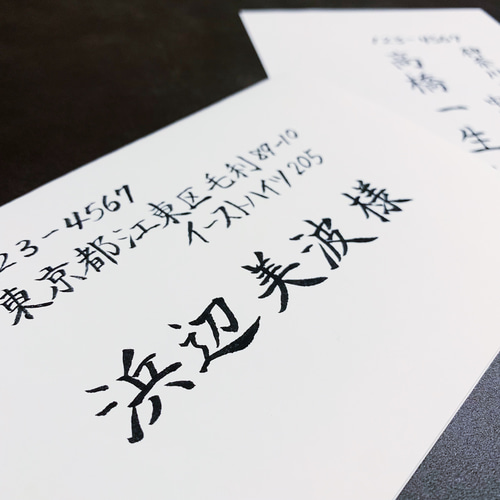 23-4567
東京都江東区毛利89-10
イーストハイツ205
浜辺美波様
23-4567
高橋一生